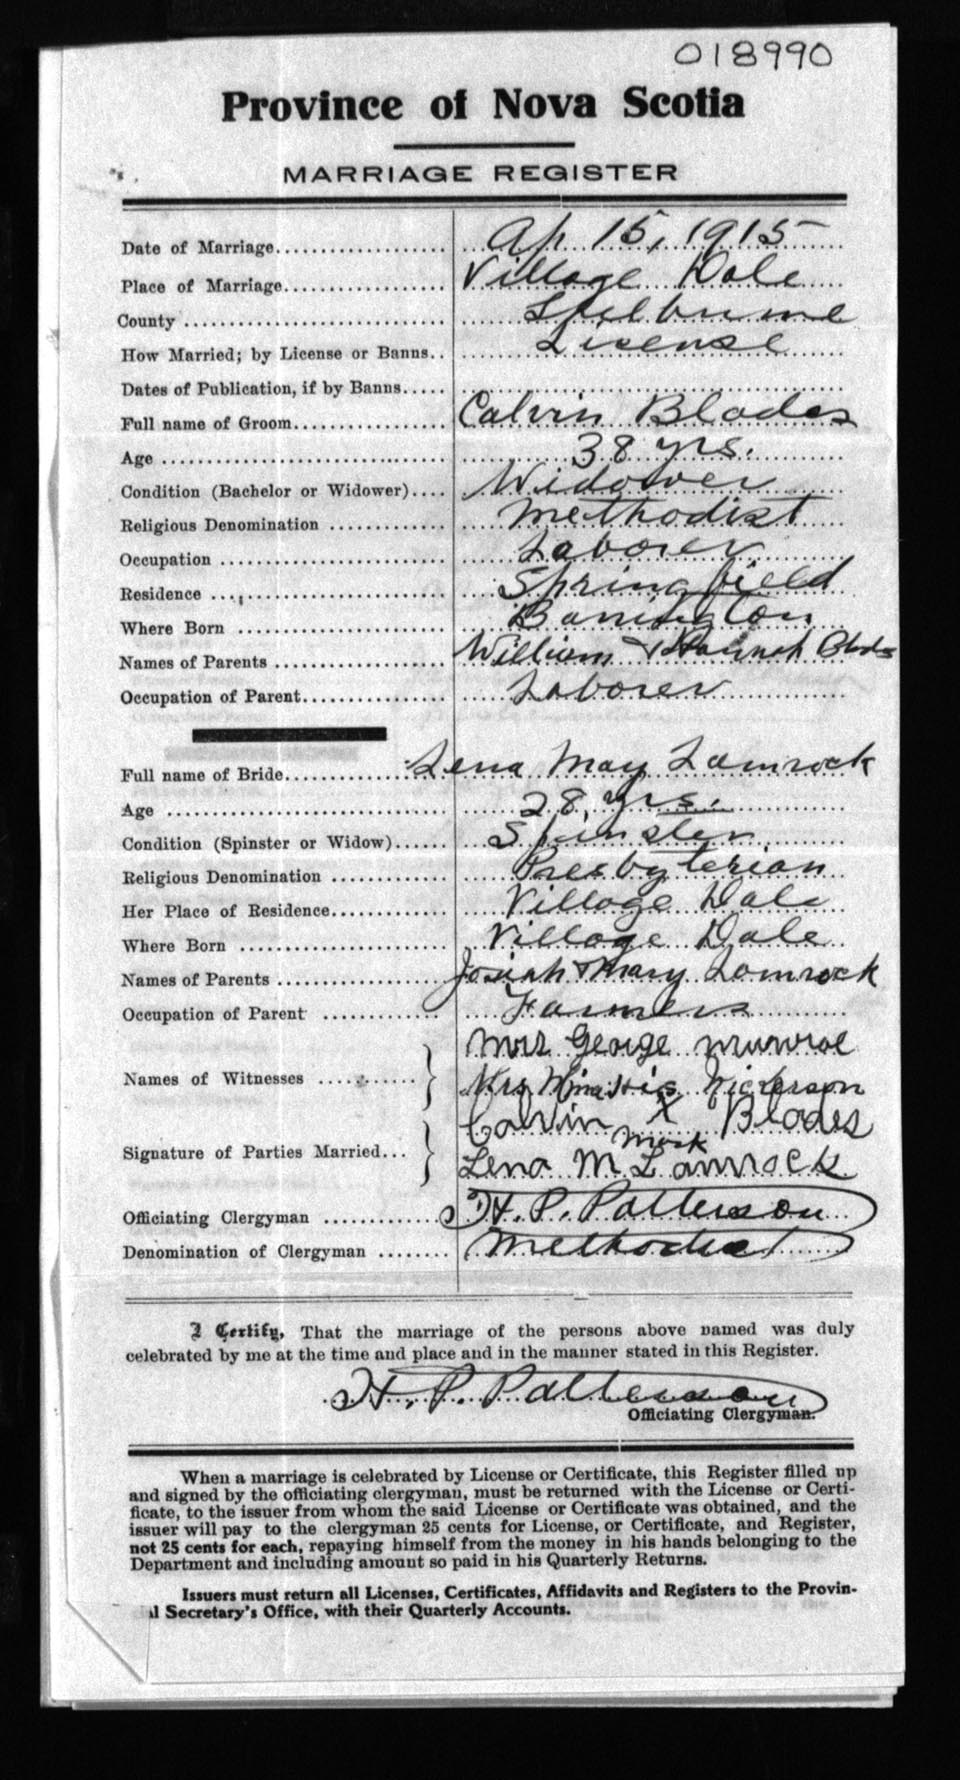 018990
Province of Nova Scotia
MARRIAGE REGISTER
Date of Marriage.................... Ap 15, 1915
Place of Marriage................... Village Dale
County .............................. Shelburne
How Married; by License or Banns.. License
Dates of Publication, if by Banns.....
Full name of Groom................. Calvin Blades
Age ................................. 38 yrs.
Condition (Bachelor or Widower).... Widower
Religious Denomination ............. Methodist
Occupation .......................... Laborer
Residence ........................... Springfield
Where Born ......................... Barrington
Names of Parents ................... William & Hannah Blades
Occupation of Parent................ Laborer
Full name of Bride.................. Lena May Lamrock
Age ................................. 28 yrs.
Condition (Spinster or Widow)...... Spinster
Religious Denomination ............. Presbyterian
Her Place of Residence.............. Village Dale
Where Born ......................... Village Dale
Names of Parents ................... Josiah & Mary Lamrock
Occupation of Parent ............... Farmers
Mrs George Munroe
Names of Witnesses ........... Mrs Nickerson
Calvin his X mark Blades
Signature of Parties Married... Lena M Lamrock
Officiating Clergyman .............. H. P. Patterson
Denomination of Clergyman ........ Methodist
I Certify, That the marriage of the persons above named was duly
celebrated by me at the time and place and in the manner stated in this Register.
H. P. Patterson
Officiating Clergyman.
When a marriage is celebrated by License or Certificate, this Register filled up
and signed by the officiating clergyman, must be returned with the License or Certi-
ficate, to the issuer from whom the said License or Certificate was obtained, and the
issuer will pay to the clergyman 25 cents for License, or Certificate, and Register,
not 25 cents for each, repaying himself from the money in his hands belonging to the
Department and including amount so paid in his Quarterly Returns.
Issuers must return all Licenses, Certificates, Affidavits and Registers to the Provin-
al Secretary's Office, with their Quarterly Accounts.